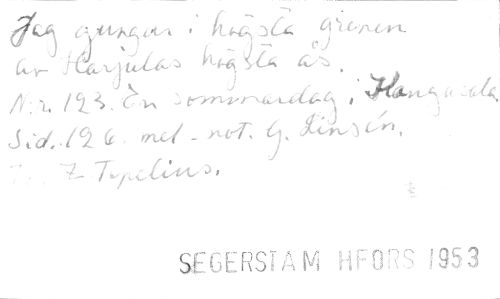 Jag gungar i högsta grenen
av Harjulas högsta ås.
N:r. 123. En sommardag i Kangasala.
Sid. 126. mel-not. G. Linsén.
Z Topelius.
SEGERSTAM HFORS 1953